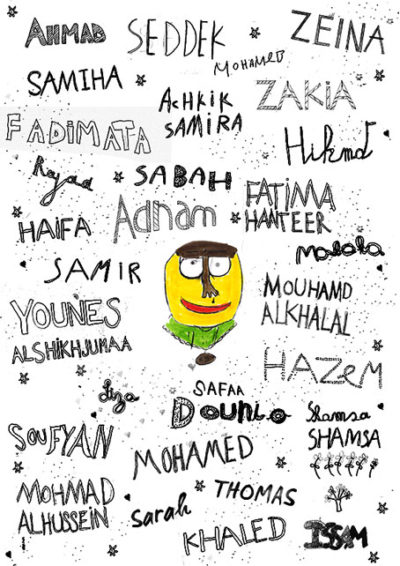 AHMAD
SEDDEK
ZEINA
MOHAMED
SAMIHA
ACHKIK
SAMIRA
ZAKIA
FADIMATA
Hikmat
Rayad
SABAH
FATIMA
HANTEER
HAIFA
Adnam
Malala
SAMIR
MOUHAMD
ALKHALAL
YOUNES
ALSHIKHJUMAA
HAZEM
Liza
SAFAA
Dounio
Shamsa
SHAMSA
SOUFYAN
MOHAMED
MOHMAD
ALHUSSEIN
Sarah
THOMAS
KHALED
ISSAM